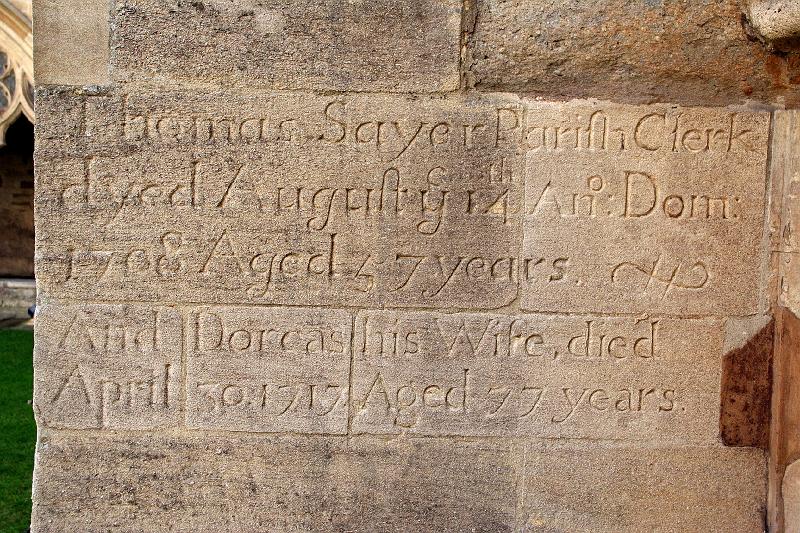 Thomas Sayer Pariſh Clerk
dyed Auguſt yᵉ 14ᵗʰ Anº: Dom:
1708 Aged 57 years.
And Dorcas his Wife, died
April 30. 1717. Aged 77 years.